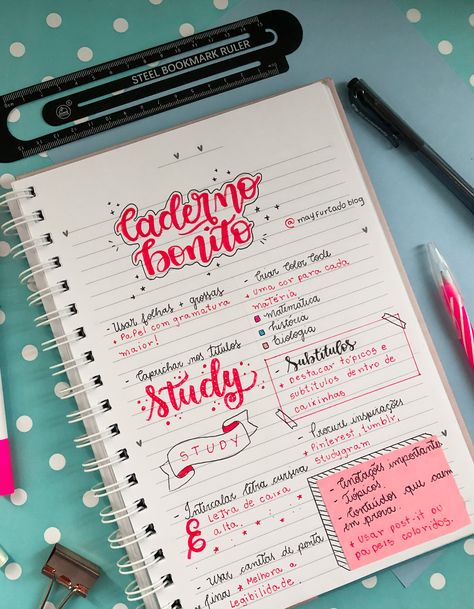 STEEL BOOKMARK RULER
Caderno
bonito
@mayfurtado blog
- Usar folhas + grossas
+ Papel com gramatura
maior!
- Caprichar nos títulos
Study
STUDY
- Intercalar letra cursiva
É Letra de caixa
alta.
- Usar canetas de ponta
fina * Melhora a
legibilidade.
- Criar Color Code
+ uma cor para cada
matéria
matemática
história
biologia
- Subtítulos
+ Destacar tópicos e
subtítulos dentro de
caixinhas
- Procure inspirações
+ Pinterest, tumblr,
studygram
- Anotações importantes
- Tópicos.
- Conteúdos que caem
em prova.
+ Usar post-it ou
papéis coloridos.